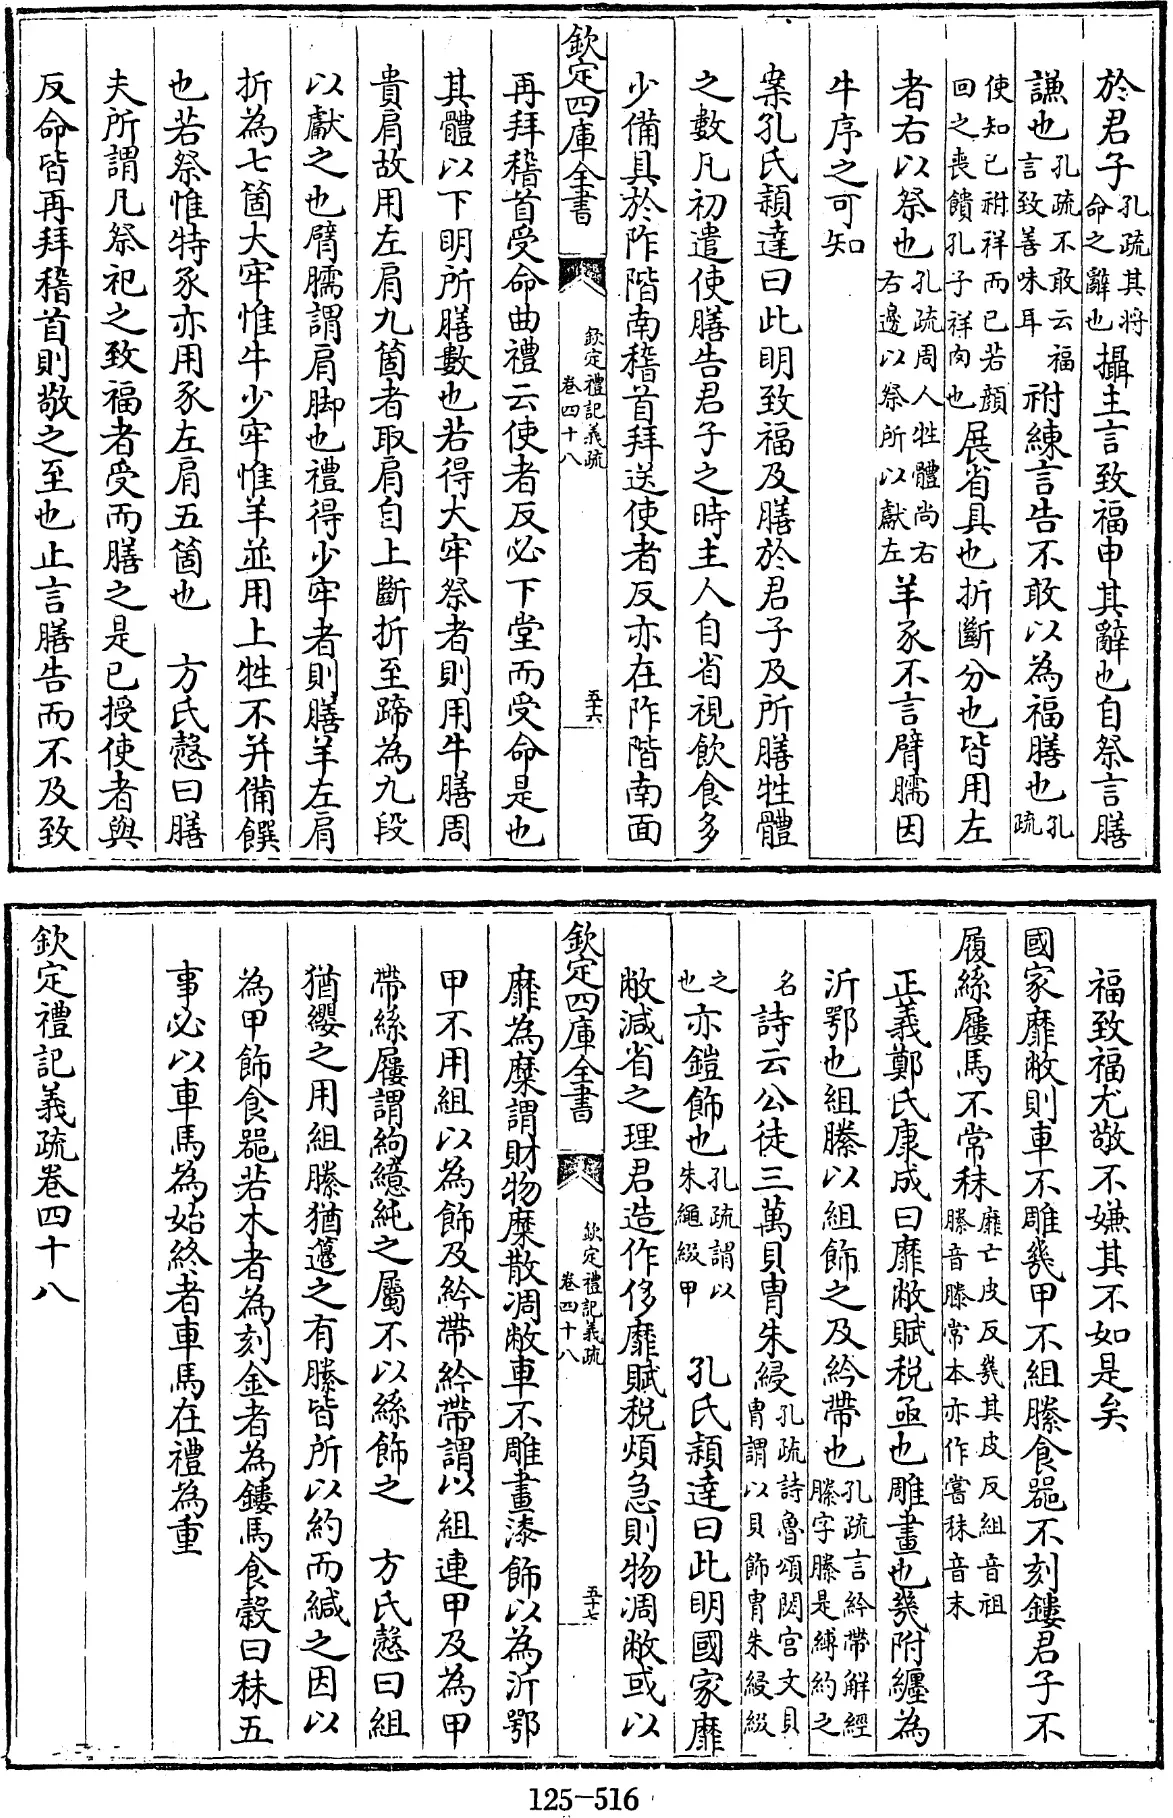 於君子孔疏其將命之辭也攝主言致福申其辭也自祭言膳
謙也孔疏不敢云福言致善味耳祔練言告不敢以為福膳也孔疏
使知已祔祥而已若顏回之喪饋孔子祥肉也展省具也折斷分也皆用左
者右以祭也孔疏周人牲體尚右右邊以祭所以獻左羊豕不言臂臑因
牛序之可知
案孔氏穎達曰此明致福及膳於君子及所膳牲體
之數凡初遣使膳告君子之時主人自省視飲食多
少備具於阼階南稽首拜送使者反亦在阼階南面
欽定四庫全書
欽定禮記義疏
卷四十八
五十六
再拜稽首受命曲禮云使者反必下堂而受命是也
其體以下明所膳數也若得大牢祭者則用牛膳周
貴肩故用左肩九箇者取肩自上斷折至蹄為九段
以獻之也臂臑謂肩脚也禮得少牢者則膳羊左肩
折為七箇大牢惟牛少牢惟羊並用上牲不并備饌
也若祭惟特豕亦用豕左肩五箇也　方氏慤曰膳
夫所謂凡祭祀之致福者受而膳之是已授使者與
反命皆再拜稽首則敬之至也止言膳告而不及致
福致福尤敬不嫌其不如是矣
國家靡敝則車不雕幾甲不組縢食器不刻鏤君子不
履絲屨馬不常秣靡亡皮反幾其皮反組音祖縢音滕常本亦作嘗秣音末
正義鄭氏康成曰靡敝賦稅亟也雕畫也幾附纏為
沂鄂也組縢以組飾之及紟帶也孔疏言紟帶解經縢字縢是縛約之
名詩云公徒三萬貝冑朱綅孔疏詩魯頌閟宫文貝冑謂以貝飾冑朱綅綴
之也亦鎧飾也孔疏謂以朱繩綴甲　孔氏穎達曰此明國家靡
敝減省之理君造作侈靡賦稅煩急則物凋敝或以
欽定四庫全書
欽定禮記義疏
卷四十八
五十七
靡為糜謂財物糜散凋敝車不雕畫漆飾以為沂鄂
甲不用組以為飾及紟帶紟帶謂以組連甲及為甲
帶絲屨謂絇繶純之屬不以絲飾之　方氏慤曰組
猶纓之用組縢猶籩之有縢皆所以約而緘之因以
為甲飾食器若木者為刻金者為鏤馬食榖曰秣五
事必以車馬為始終者車馬在禮為重
欽定禮記義疏卷四十八
125-516